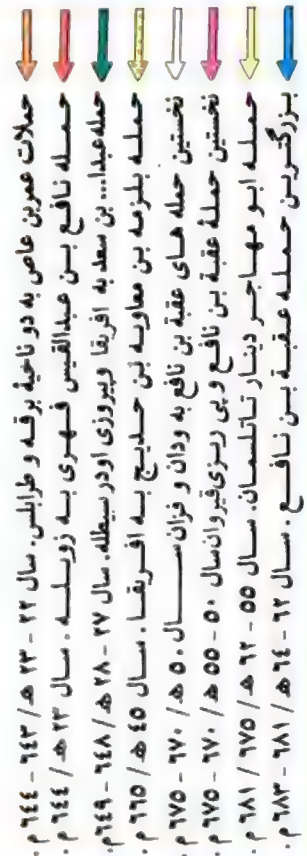 حملات عمربن عاص به دو ناحیهٔ برقه و طرابلس. سال ۲۲ - ۲۳ هـ/ ۶۴۳ - ۶۴۴ م.
حمله نافع بن عبدالقیس فهری به زویله. سال ۲۳ هـ/ ۶۴۴ م.
حمله عبدا... بن سعد به افریقا وپیروزی اودر سبیطله. سال ۲۷ - ۲۸ هـ/ ۶۴۸ - ۶۴۹م.
حمله بلزمه بن معاویه بن حدیج به افریقا. سال ٤٥ هـ/ ٦٦٥ م.
نخستین حمله های عقبة بن نافع به ودان و فزان ســال ۵۰ هـ/ ۶۷۰ - ۶۷۵ م.
نخستین حملهٔ عقبة بن نافع و پی ریزی قیروان سال ۵۰ - ۵۵ هـ/ ۶۷۰ - ۶۷۵ م.
حمله ابو مهاجر دینار تاتلمسان. سال ۵۵ - ۶۲ هـ/ ۶۷۵ / ۶۸۱ م.
بزرگترین حمله عقبة بن نافع. سال ۶۲ - ۶۴ هـ/ ۶۸۱ - ۶۸۳ م.